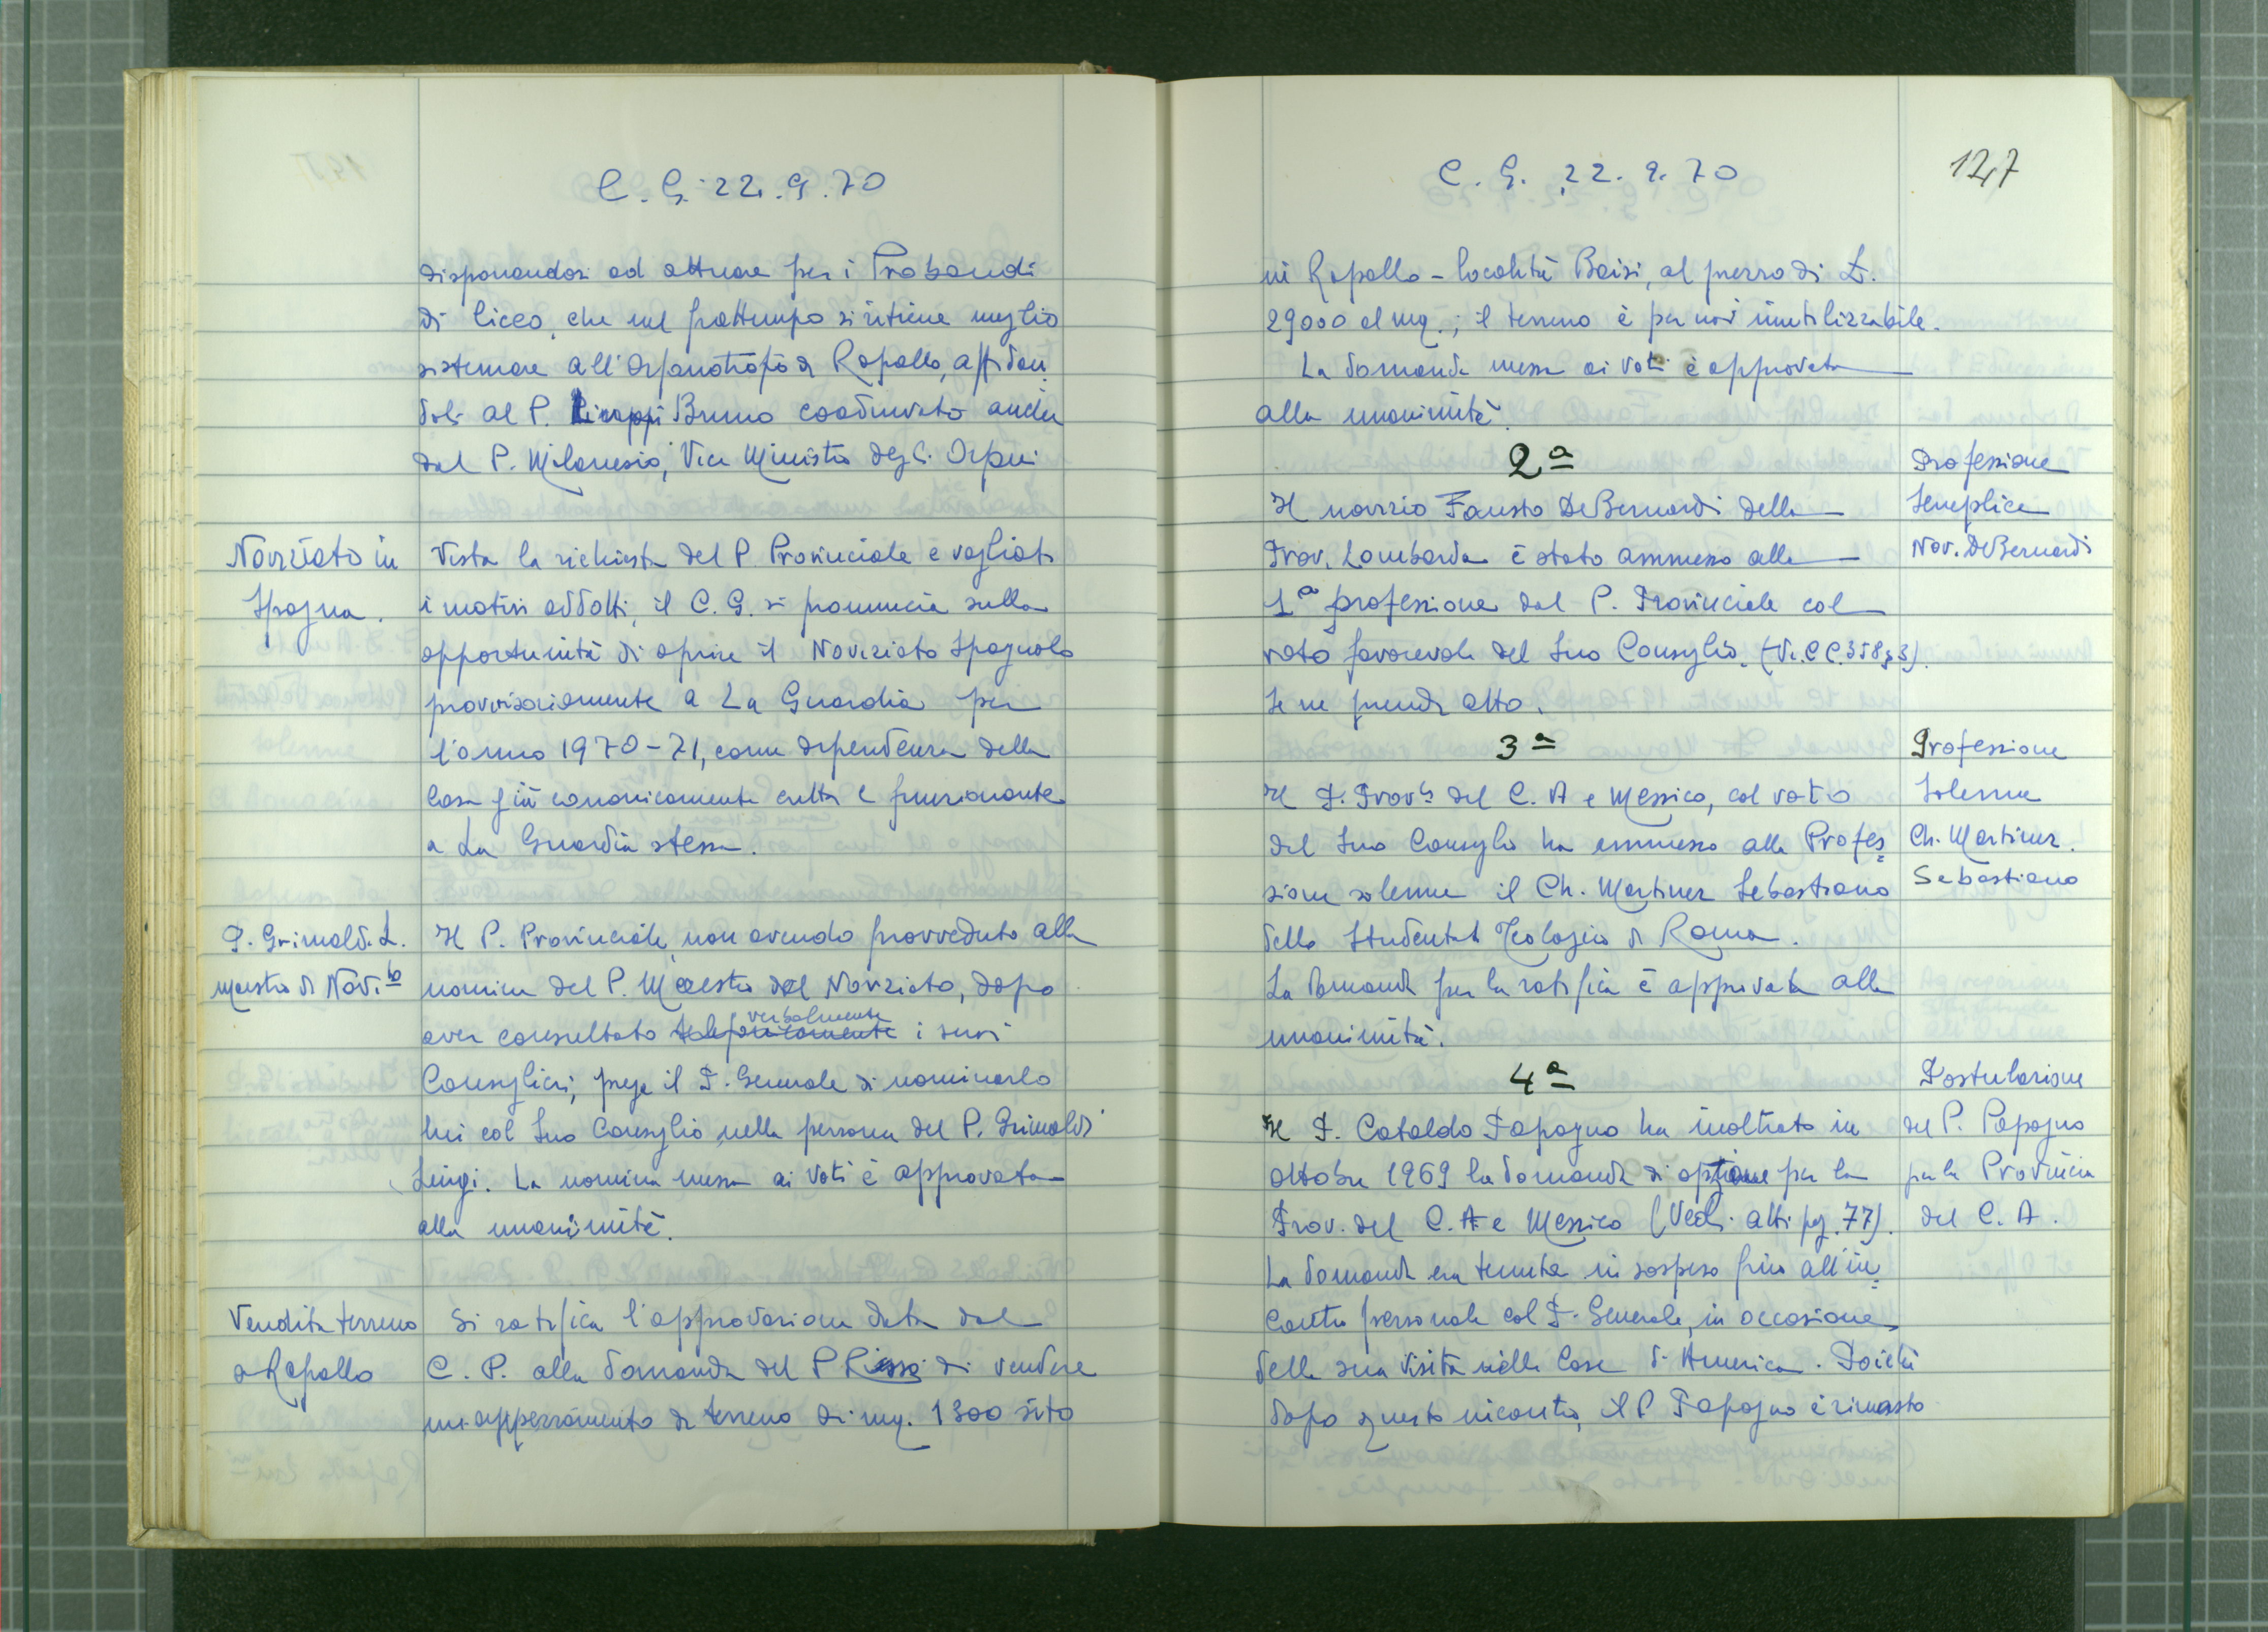 C. G. 22.9.70
disponendosi ad attuare per i Probandi
di liceo, che nel frattempo si ritiene meglio
sistemare all'Orfanotrofio di Rapallo, affidan
doli al P. Bruno coadiuvato anche
dal P. Milanesio, Vice Ministro degli Orfani
Noviziato in
Spagna.
Vista la richiesta del P. Provinciale e vagliati
i motivi addotti, il C. G. si pronuncia sulla
opportunità di aprire il Noviziato Spagnolo
provvisoriamente a La Guardia per
l'anno 1970-71, come dipendenza della
Casa già canonicamente eretta e funzionante
a La Guardia stessa.
P. Grimaldi L.
maestro di Novi.to
Il P. Provinciale, non avendo provveduto alla
nomina del P. Maestro del Noviziato, dopo
verbalmente
aver consultato telefonicamente i suoi
Consiglieri, prega il P. Generale di nominarlo
lui col Suo Consiglio nella persona del P. Grimaldi
Luigi. La nomina messa ai voti è approvata
alla unanimità.
Vendita terreno
a Rapallo
Si ratifica l'approvazione data dal
C. P. alla domanda del P. di vendere
un appezzamento di terreno di mq. 1300 sito
C. G. 22.9.70
127
in Rapallo - località Baisi, al prezzo di L.
29000 al mq.; il terreno è per noi inutilizzabile.
La domanda messa ai voti è approvata
alla unanimità.
2a
Professione
Semplice
Nov. DeBernardi
Il novizio Fausto DeBernardi della
Prov. Lombarda è stato ammesso alla
1a professione dal P. Provinciale col
voto favorevole del Suo Consiglio. (Vi. C C. 358, 3).
Se ne prende atto.
3a
Professione
Solenne
Ch. Martinez
Sebastiano
Il P. Prov.le del C. A e Messico, col voto
del Suo Consiglio ha ammesso alla Profes
sione solenne il Ch. Martinez Sebastiano
dello Studentato Teologico di Roma.
La domanda per la ratifica è approvata alla
unanimità.
4a
Postulazione
del P. Papagno
per la Provincia
del C. A.
Il P. Cataldo Papagno ha inoltrato in
ottobre 1969 la domanda di opzione per la
Prov. del C. A e Messico (Vedi atti pag. 77).
La domanda era tenuta in sospeso fino all'in
contro personale col P. Generale, in occasione
della sua visita nelle Case di America. Poichè
dopo questo incontro, il P. Papagno è rimasto